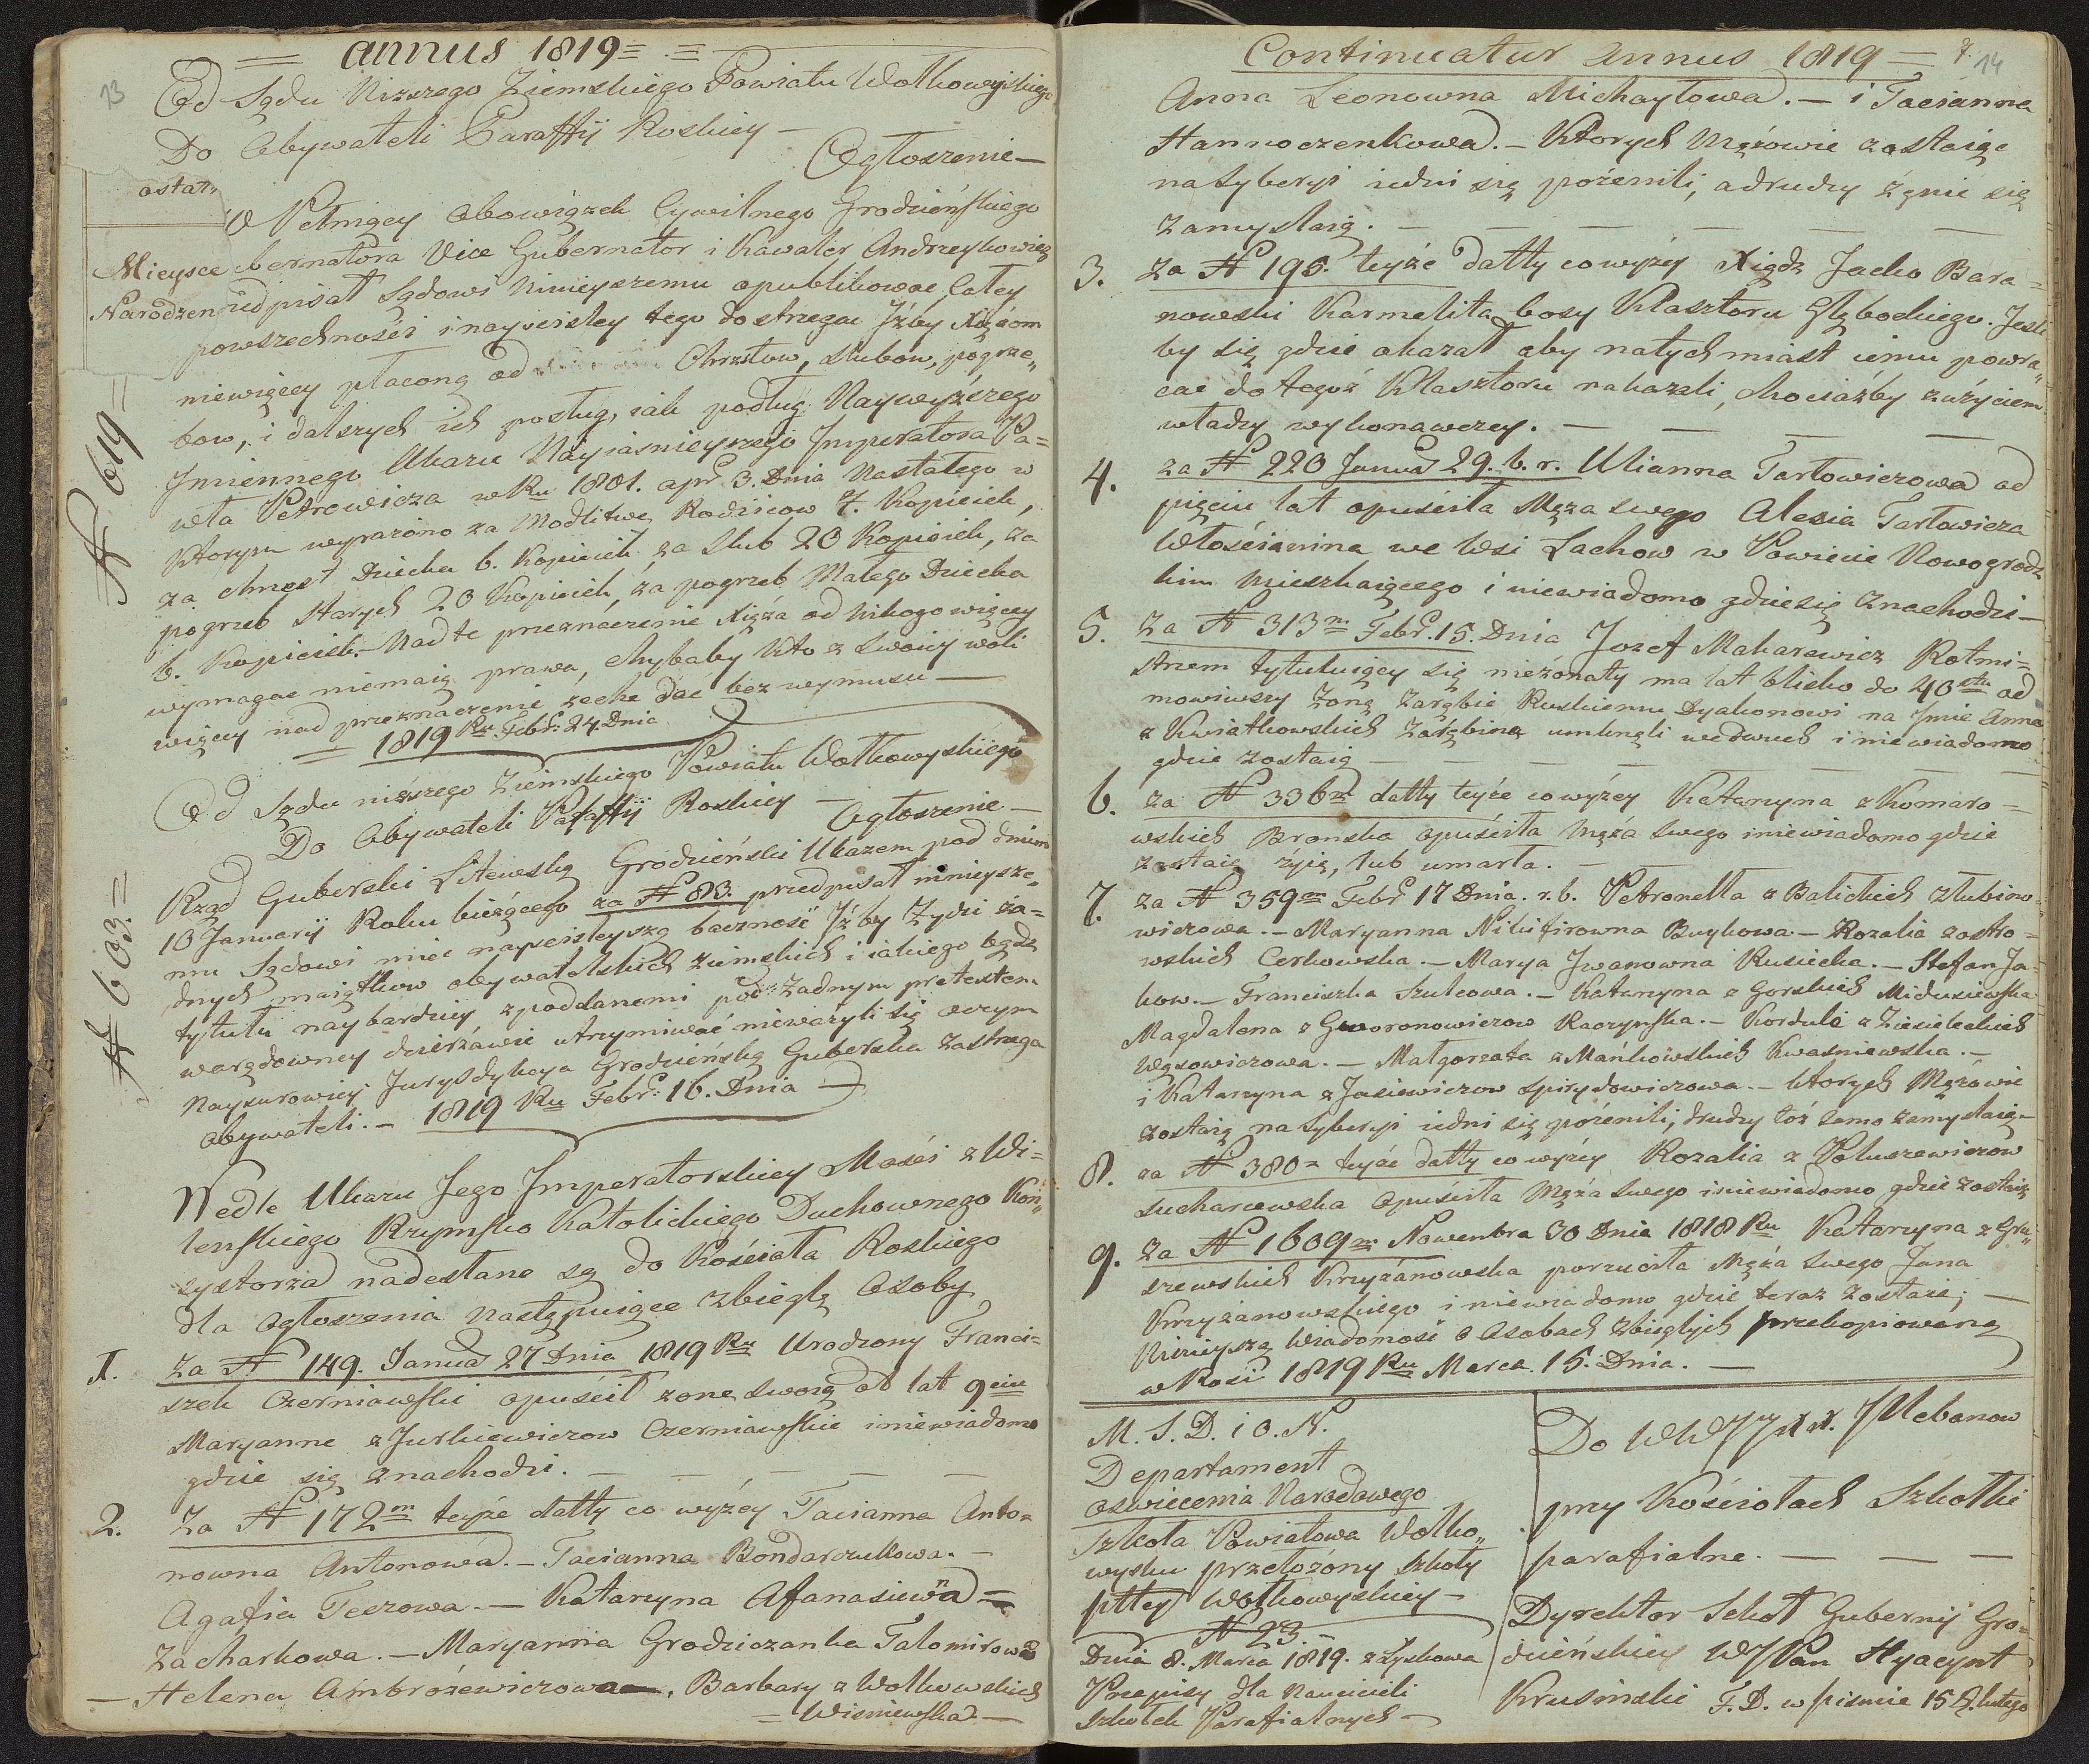 = annus 1819 = . =
13
Od Sądu Niższego Ziemskiego Powiatu Wołkowyskiego
Do Obywateli Paraffij Roskiey —
Ogłoszenie —
ostat
W Pełniący Obowiązek Cywilnego Grodzieńskiego
Mieysce bernatora Vice Gubernator i Kawaler Andrzeykowicz
Narodzen edpisał Sądowi Ninieyszemu opublikowac całey
powszechności i nayscisley tego dostrzegac Jżby Xięźom
niewięcey płacono od Chrztow, slubow, pogrze„
bow, i dalszych ich posług, iak podług Naywyższego
N 619 =
Jmiennego Ukazu Nayiasnieyszego Jmperatora Pa=
wła Petrowicza w Ru 1801. apr 3. Dnia Nastałego w
Ktorym wyrażono za Modlitwę Rodzicow 7. Kopieiek,
za chrzest Dziecka 6. Kopieiek za Slub 20 Kopieiek, za
pogrzeb Starych 20 Kopieiek, za pogrzeb Małego Dziecka
6. Kopieiek. — Nad te przeznaczenie Xięża od Nikogo więcey
wymagac niemaią prawa, chybaby kto z Swoiey woli
więcey nad przeznaczenie zechce dać bez wymusu —
= 1819 Ru Febr: 24. Dnia
Od Sądu niższego Ziemskiego Powiatu Wołkowyskiego
Do Obywateli Paraffij Roskiey —
Ogłoszenie —
Rząd Guberski Litewsky Grodzieński Ukazem pod dniem
10 Januarij Roku bieżącego za N 83. przedpisał ninieysze„
mu Sądowi miec nayscisleyszą baczność Jż by Żydzi ża=
N 603. =
dnych maiątkow obywatelskich ziemskich i iakiego bądz
tytułu naybardziey z poddanemi pod żadnym pretextem
warędowney dzierżawie utrzymiwać nieważyli się oczym
Naysurowiey Jurysdykcya Grodzieńską Guberska zastrzega
Obywateli. — 1819 Ru Febr: 16. Dnia —
Wedle Ukazu Jego Jmperatorskiey Mości z Wi=
lenskiego Rzymsko Katolickiego Duchownego Kon„
systorza nadesłane są do Kościoła Roskiego
dla Ogłoszenia następuiące zbiegłe Osoby
1. Za N 149. Janua 27 Dnia 1819 Ru Urodzony Franci=
szek Czerniawski opuścił żone swoią od lat 9ciu
Maryanne z Jurkiewiczow Czerniawskie i niewiadomo
gdzie się znachodzi. — — — — —
2. Za N 172m teyże datty co wyżey Tacianna Anto=
nowna Antonowa. — Tacianna Bondarczukowa. —
Agafia Teczowa. — Katarzyna Afanasiewna =
Zacharkowa. — Maryanna Grodziczanka Talomirowa
— Helena Ambrożewiczowa —, Barbary z Wołkowskich
= Wisniewska. —
Continuatur annus 1819 = 7. 14
Anna Leonowna Michayłowa. — i Tacianna
Hannoczenkowa. — Ktorych Mężowie zostaiąc
na Syberyi iedni się pożenili, a drudzy żenić się
zamyslaią. — — — — — —
3. Za N 195. teyże datty co wyżey Xiądz Jacko Bara=
nowski Karmelita bosy Klasztoru Głębockiego. Jesli
by się gdzie okazał aby natychmiast iemu powra„
cac do tegoż Klasztoru nakazali, chociażby zużyciem
władzy wykonawczey. — — — —
4. za N 220 Janua 29. b. r. Ulianna Tartowiczowa od
pięciu lat opuściła Męża swego Alexia Tartowicza
Włościanina we Wsi Lachow w Powiecie Nowogrodz
kim Mieszkaiącego i niewiadomo gdzie się znachodzi —
5. Za N 313m Febr. 15. Dnia Jozef Makarewicz Rotmi=
strzem tytułuiący się nieżonaty ma lat blisko do 40stu od
mowiwszy Żonę Zarębie Ruskiemu Dyakonowi na Jmie Anna
z Kwiatkowskich Zarębinę umknęli we dwuch i niewiadomo
gdzie zostaią — — — — — —
6. za N 336m datty teyże co wyżey Katarzyna z Komaro=
wskich Bronska opuściła Męża swego i niewiadomo gdzie
zostaie żyie, lub umarła. — —
7. za N 359m Febr 17 Dnia. r. b. Petronella z Balickich Złubino
wiczowa. — Maryanna Nikifirowna Buykowa — Rozalia zostro=
wskich Cerkowska. — Marya Jwanowna Rusiecka. — Stefan Ja=
kow. — Franciszka Szulcowa. — Katarzyna z Gorskich Miduszewska
Magdalena z Gworonowiczow Raczynska. — Kordula z Ziesieleckich
Wąsowiczowa. — Małgorzata z Mańkowskich Kwasniewska. —
i Katarzyna z Jasiewiczow Spirydowiczowa. — Ktorych Mężowie
zostaią na Syberyi iedni się pożenili, drudzy toż samo zamyslaią —
8. za N 380m teyże datty co wyżey Rozalia z Połuszewiczow
Sucharzewska opuściła Męża swego i niewiadomo gdzie zostaie
9. Za N 1609m Nowembra 30 Dnia 1818 Ru Katarzyna z Gru„
szewskich Krzyżanowska porzuciła Męża swego Jana
Krzyżanowskiego i niewiadomo gdzie teraz zostaie; —
Ninieyszą Wiadomość o Osobach Zbiegłych przekopiowano
w Rosi 1819 Ru Marca 15. Dnia. —
M. S. D. i O. N.
Departament
oswiecenia Narodowego
Szkoła Powiatowa Wołko„
wysku przełożony szkoły
pttey Wołkowyskiey —
N 23. —
Dnia 8. Marca 1819. z Łyskowa
Przepisy dla Nauczicieli
szkołek Parafialnych —
Do WWJJXX. Plebanow
przy Kościołach Szkołki
parafialne. — — —
Dyrektor Szkoł Gubernij Gro=
dzieńskiey WJPan Hyacynt
Krusinski F. D. w pismie 15 D. lutego